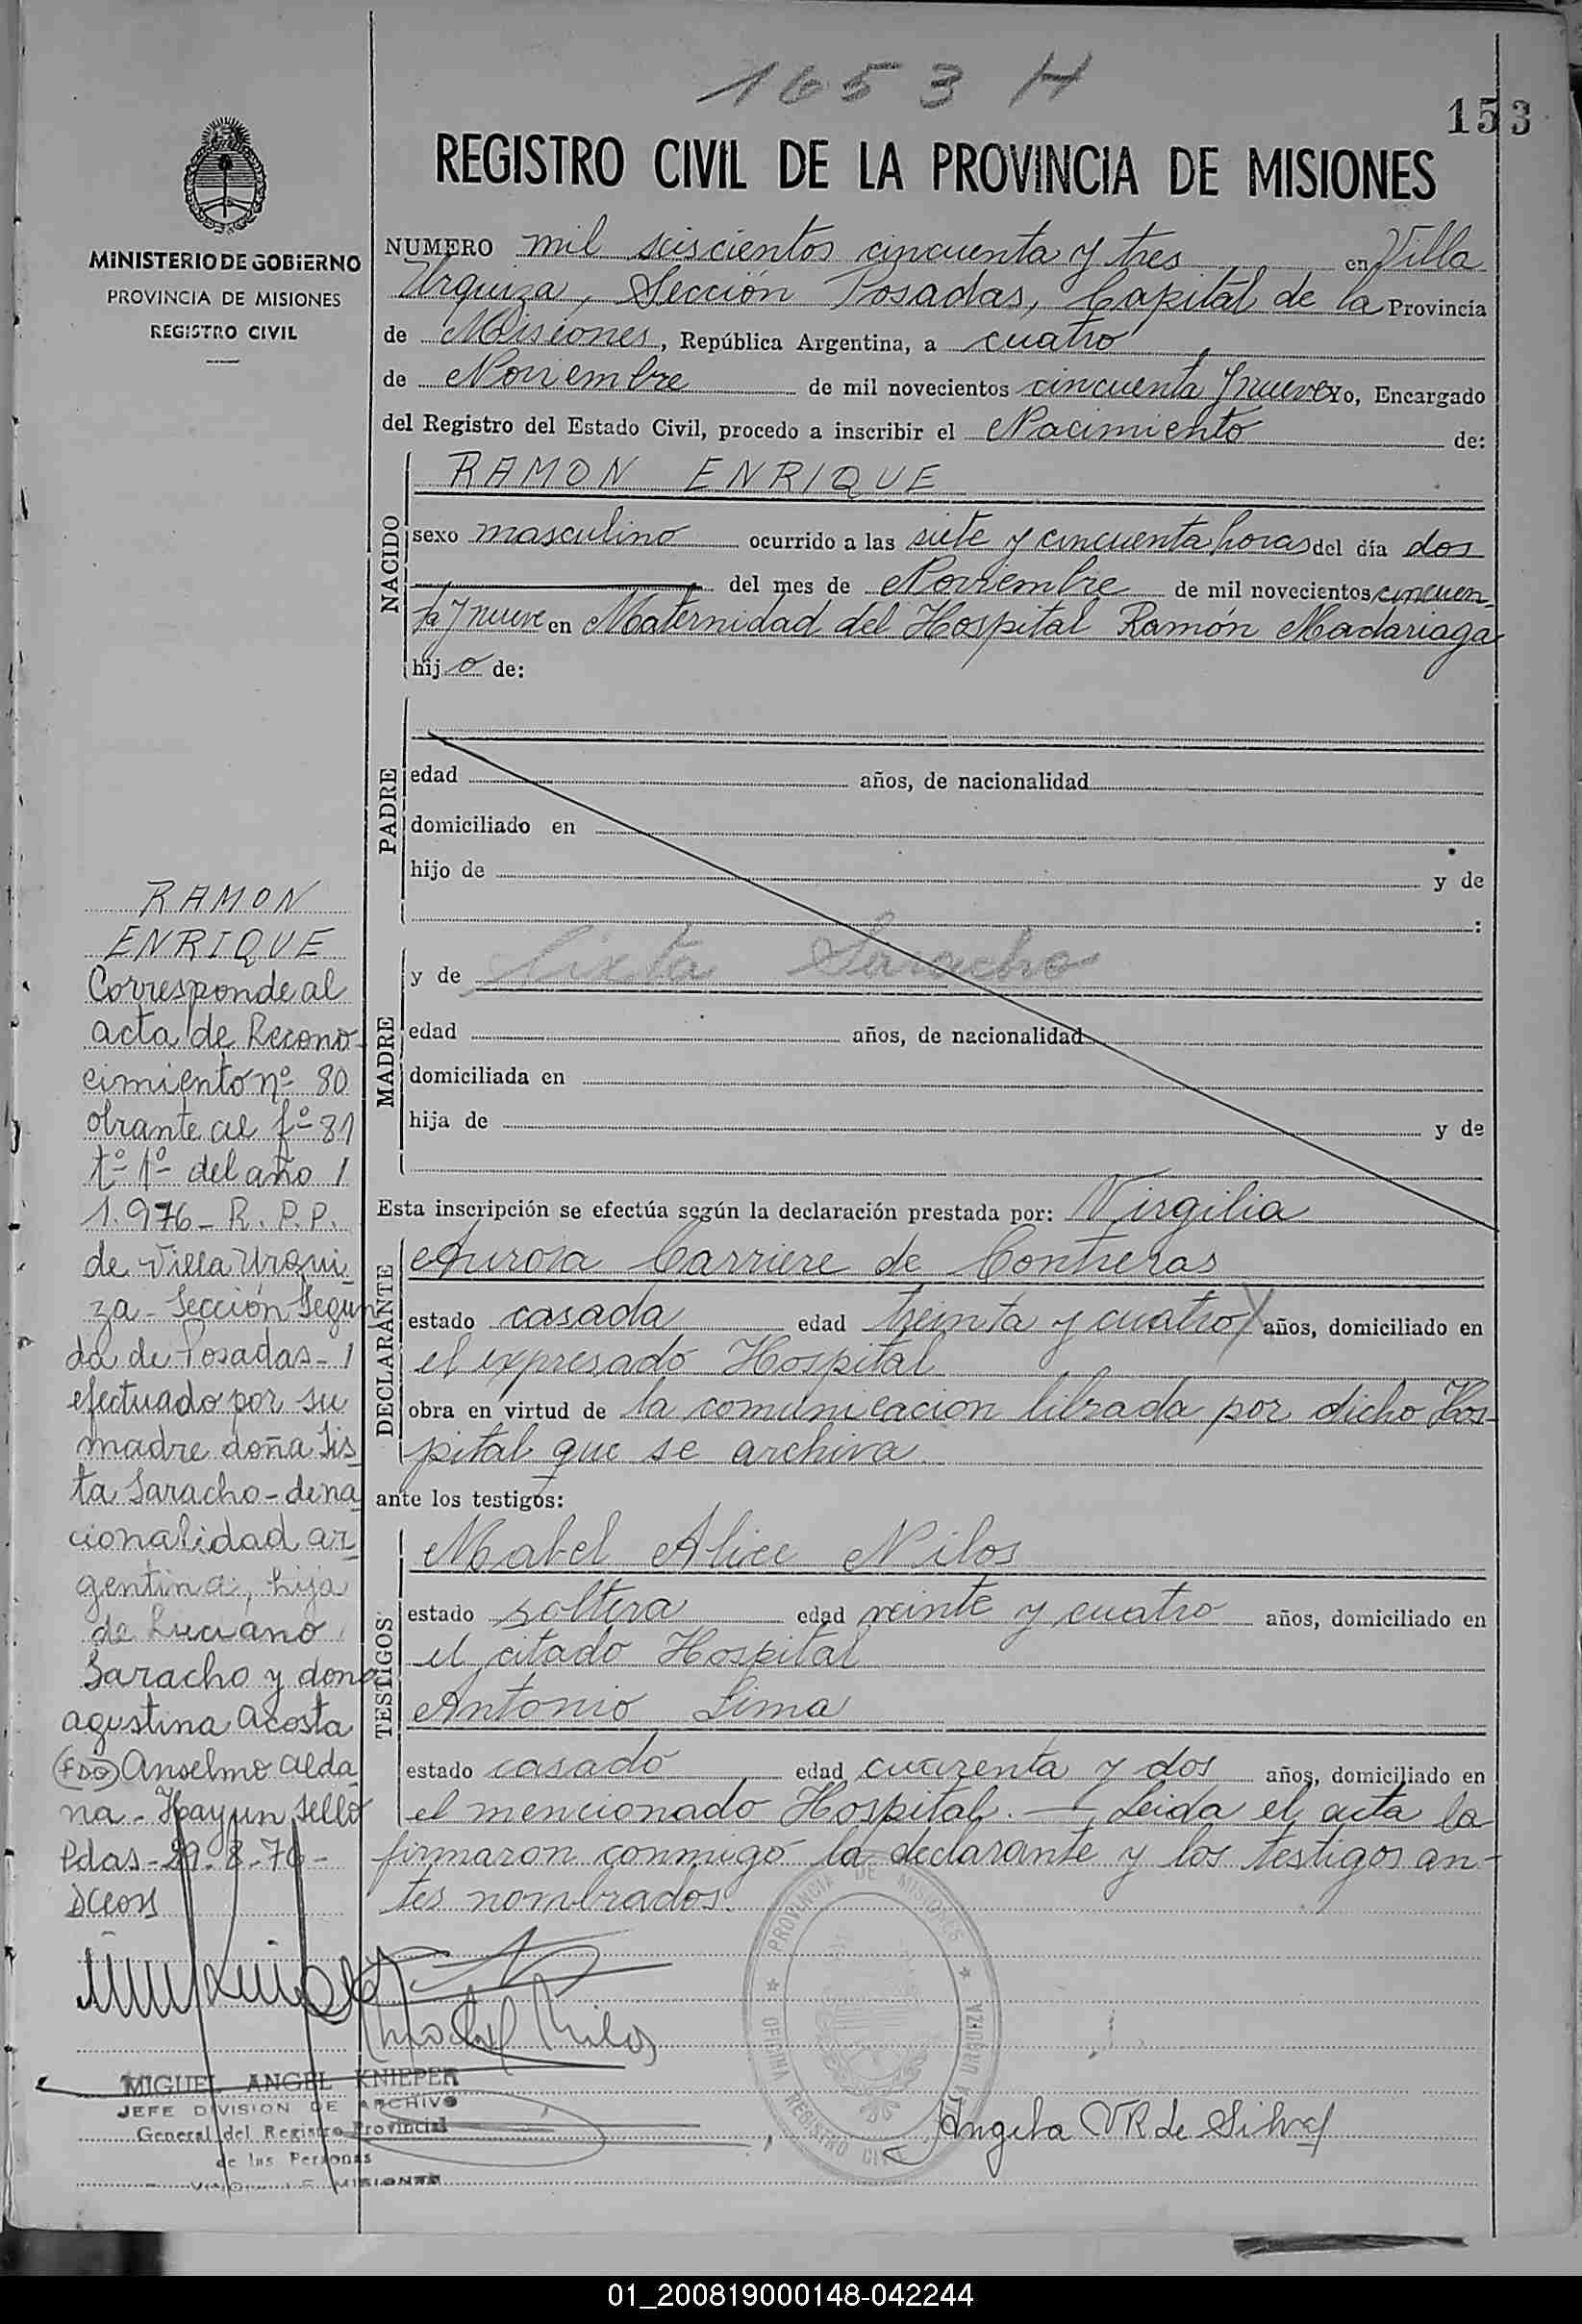 1653 H
153
REGISTRO CIVIL DE LA PROVINCIA DE MISIONES
MINISTERIO DE GOBIERNO
PROVINCIA DE MISIONES
REGISTRO CIVIL
NUMERO mil seiscientos cincuenta y tres en Villa
Urquiza, Sección Posadas, Capital de la Provincia
de Misiones, República Argentina, a cuatro
de Noviembre de mil novecientos cincuenta y nueve yo, Encargado
del Registro del Estado Civil, procedo a inscribir el Nacimiento de:
NACIDO
RAMON ENRIQUE
sexo masculino ocurrido a las siete y cincuenta horas del día dos
del mes de Noviembre de mil novecientos cincuen-
ta y nueve en Maternidad del Hospital Ramón Madariaga
hijo de:
PADRE
edad años, de nacionalidad
domiciliado en
hijo de y de
:
MADRE
y de Sixta Saracho
edad años, de nacionalidad
domiciliada en
hija de y de
Esta inscripción se efectúa según la declaración prestada por: Virgilia
DECLARANTE
Aurora Carriere de Contreras
estado casada edad treinta y cuatro años, domiciliado en
el expresado Hospital
obra en virtud de la comunicacion librada por dicho Hos-
pital que se archiva.
ante los testigos:
TESTIGOS
Mabel Alice Nilos
estado soltera edad veinte y cuatro años, domiciliado en
el citado Hospital
Antonio Lima
estado casado edad cuarenta y dos años, domiciliado en
el mencionado Hospital. — Leida el acta la
firmaron conmigo la declarante y los testigos an-
tes nombrados.
RAMON
ENRIQUE
Corresponde al
acta de Recono-
cimiento nº 80
obrante al fº 81
tº 1º del año
1.976- R. P.P.
de Villa Urqui
za- Sección Segun
da de Posadas-
efectuado por su
madre doña Sis
ta Saracho- de na
cionalidad ar
gentina, hija
de Luciano
Saracho y doña
agustina Acosta
(FDO) Anselmo Alda
na- Hay un sello
Pdas- 29-8-76-
Mabel Nilos
MIGUEL ANGEL KNIEPER
JEFE DIVISION DE ARCHIVO
General del Registro Provincial
de las Personas
MISIONES
PROVINCIA DE MISIONES
OFICINA REGISTRO CIVIL
URQUIZA
Angela VR de Silva
01_200819000148-042244